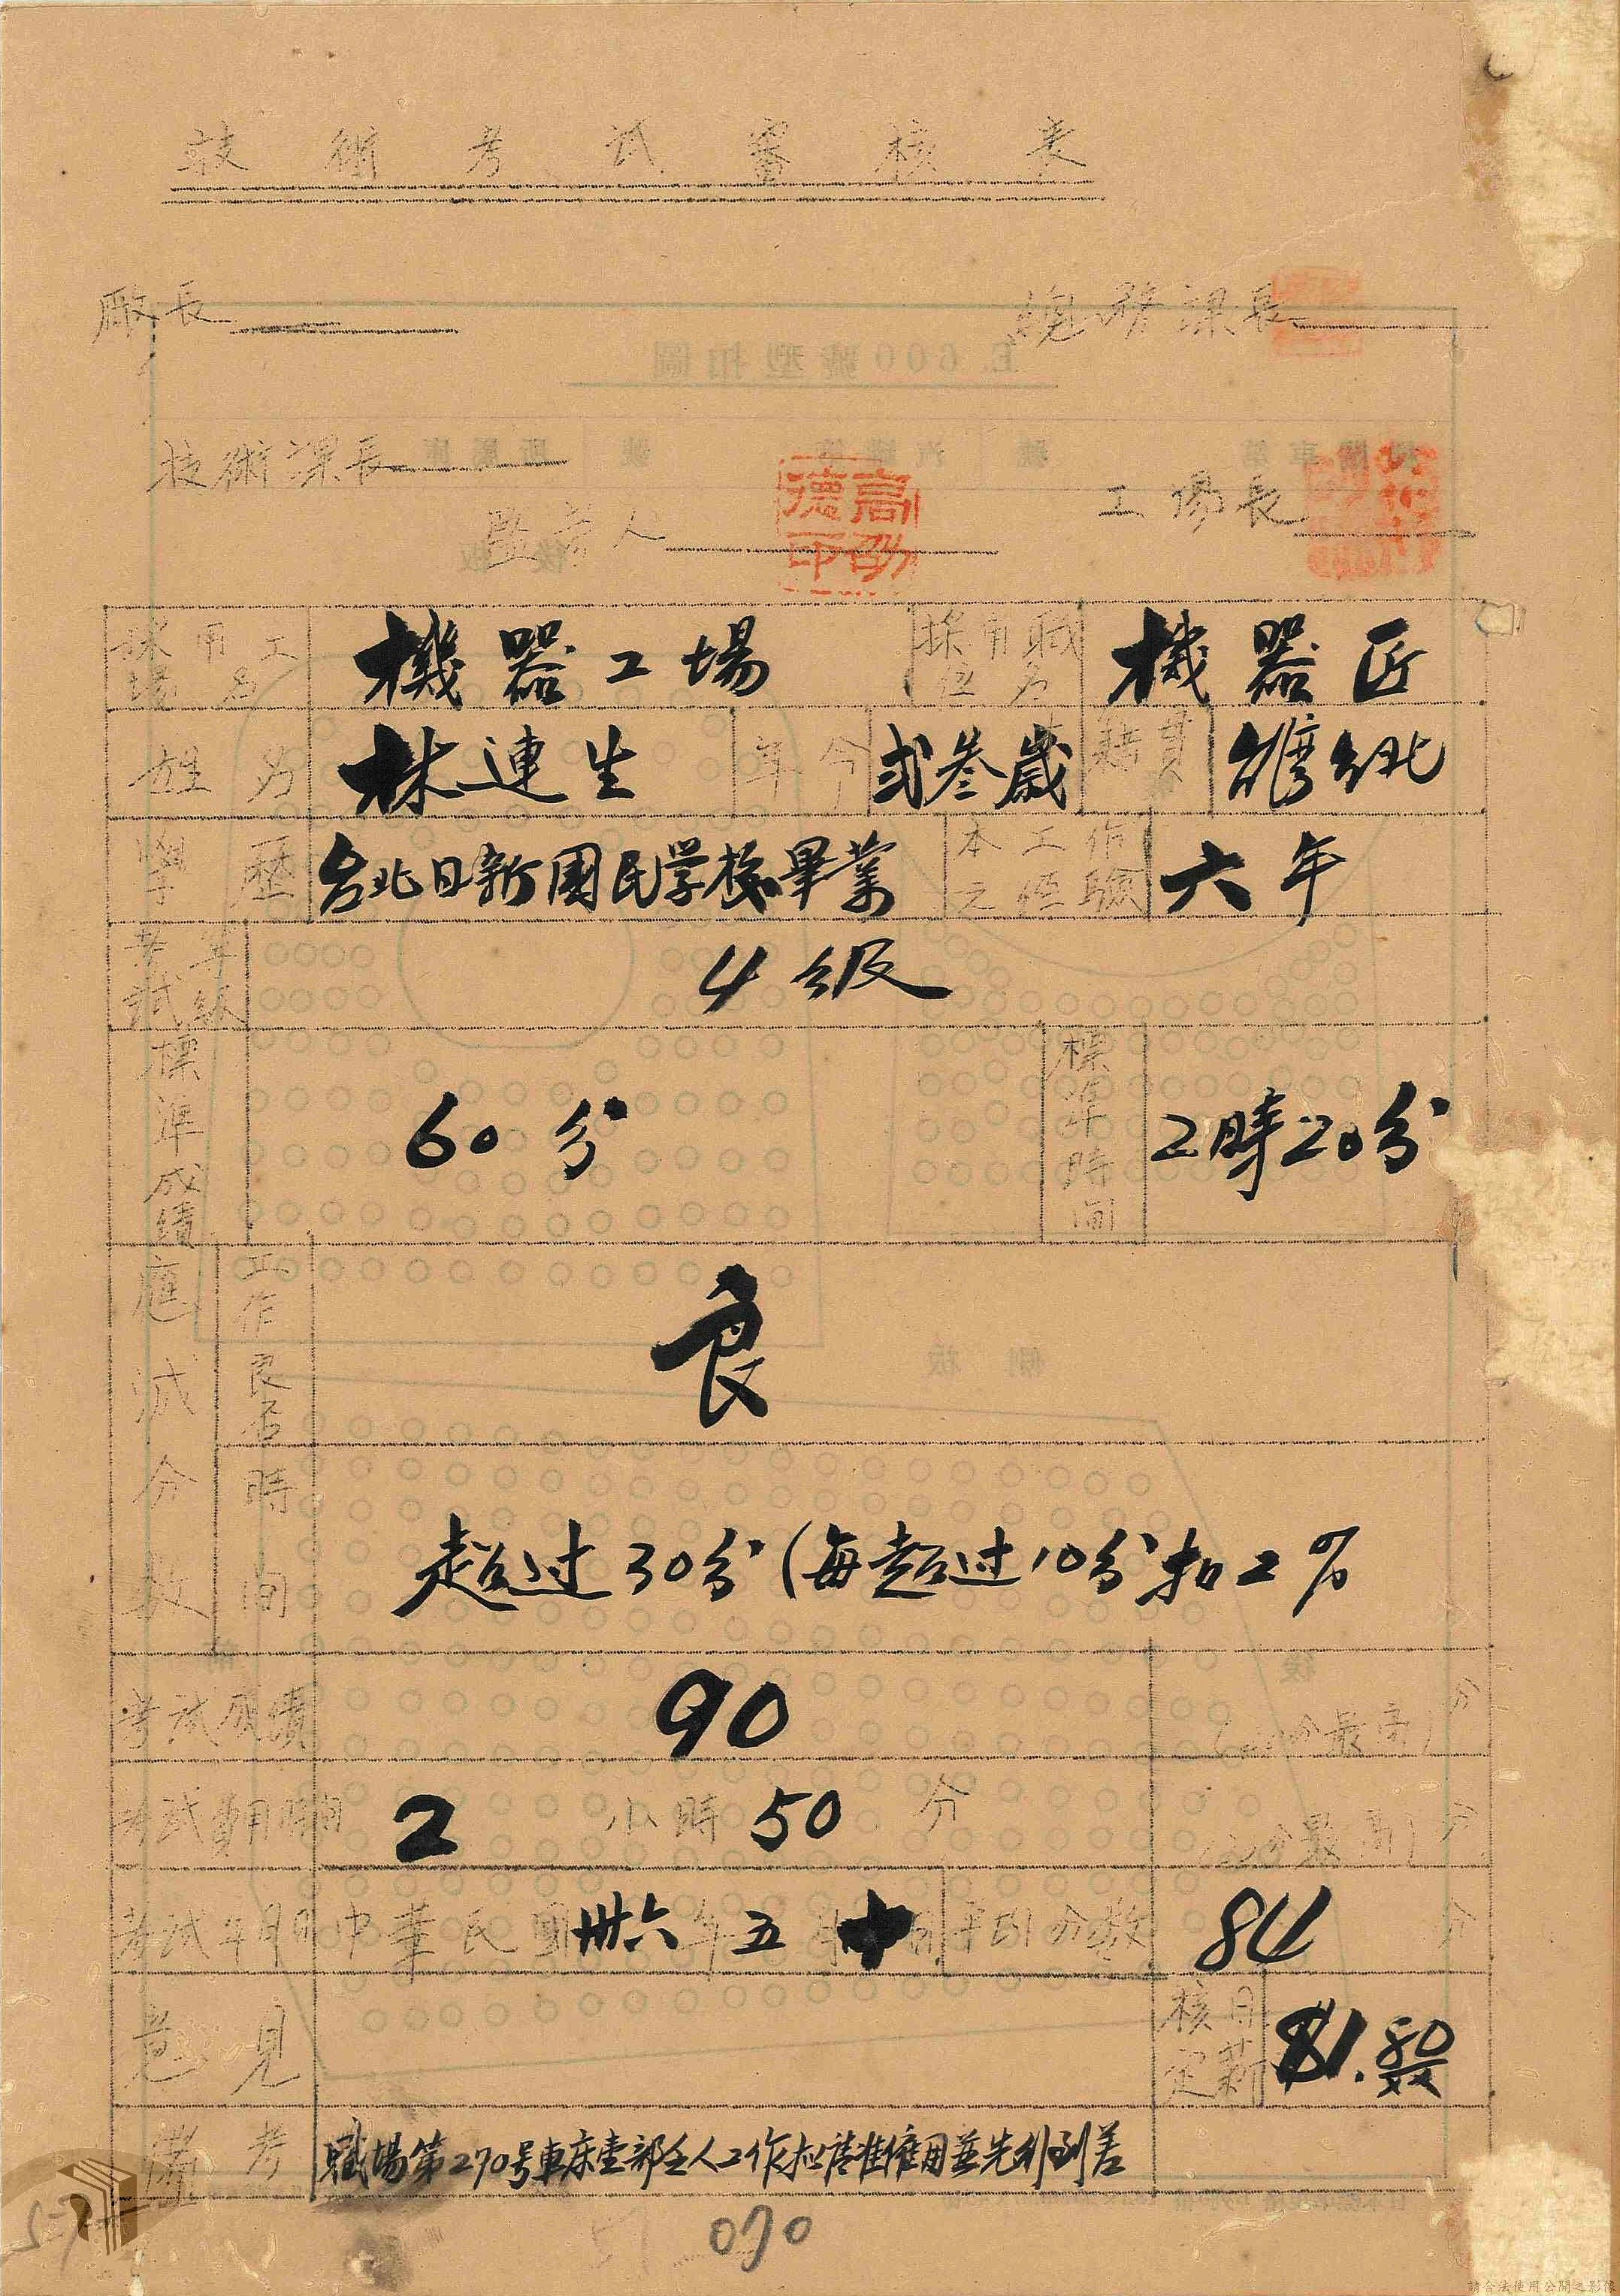 技術考試審核表
廠長
總務課長
技術課長
監考人
高
德
印
工場長
採用工場名 機器工場 採用職位名 機器匠
姓名 林連生 年令 弍叁歲 籍貫 台灣台北
學歷 台北日新國民学校畢業 本工作之經驗 六年
考試等級 4級
標準成績 60分 標準時間 2時20分
應減分數 工作良否 良
時間 超过30分(每超过10分扣2%
考試成績 90 分
考試費用時間 2小時50分 分
考試年月日 中華民國卅六年五月十日 平均分數 84分
意見 核定日薪 81.80
備考 職場第270号車床壹部乏人工作
070
57
E.600號型扣圖
請合法使用公開之影像